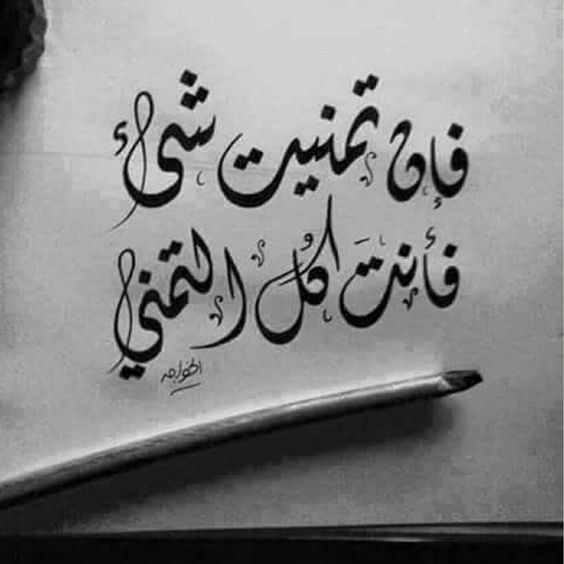 فإن تمنيت شيء
فأنتَ كُل التمني
الخواجه